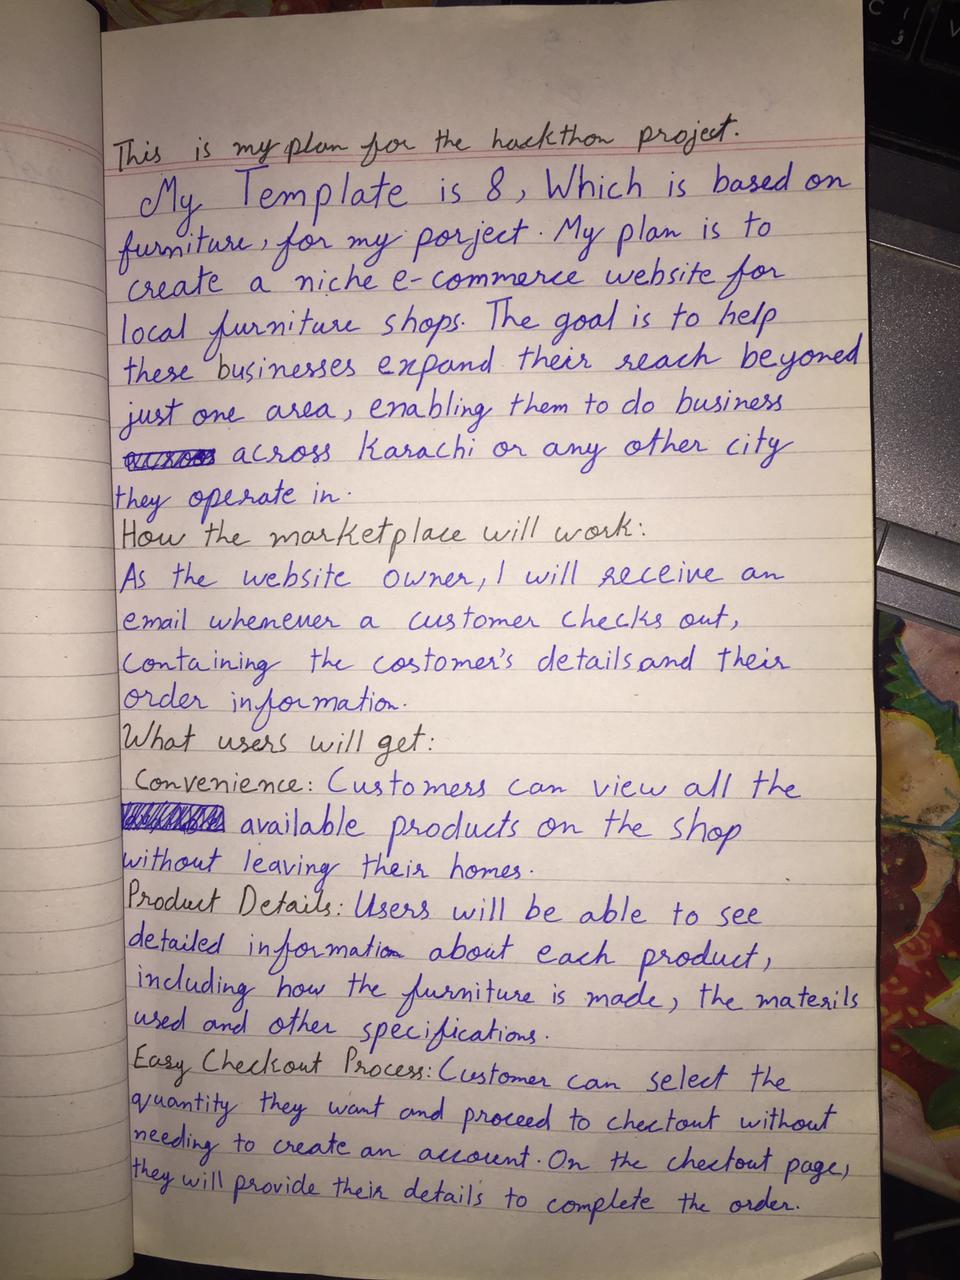 This is my plan for the hackthon project.
My Template is 8, Which is based on
furniture, for my porject. My plan is to
create a niche e-commerce website for
local furniture shops. The goal is to help
these businesses expand their reach beyoned
just one area, enabling them to do business
across Karachi or any other city
they operate in.
How the marketplace will work:
As the website owner, I will receive an
email whenever a customer checks out,
containing the costomer's details and their
order information.
What users will get:
Convenience: Customers can view all the
available products on the shop
without leaving their homes.
Product Details: Users will be able to see
detailed information about each product,
including how the furniture is made, the materils
used and other specifications.
Easy Checkout Process: Customer can select the
quantity they want and proceed to chectout without
needing to create an account. On the chectout page,
they will provide their details to complete the order.